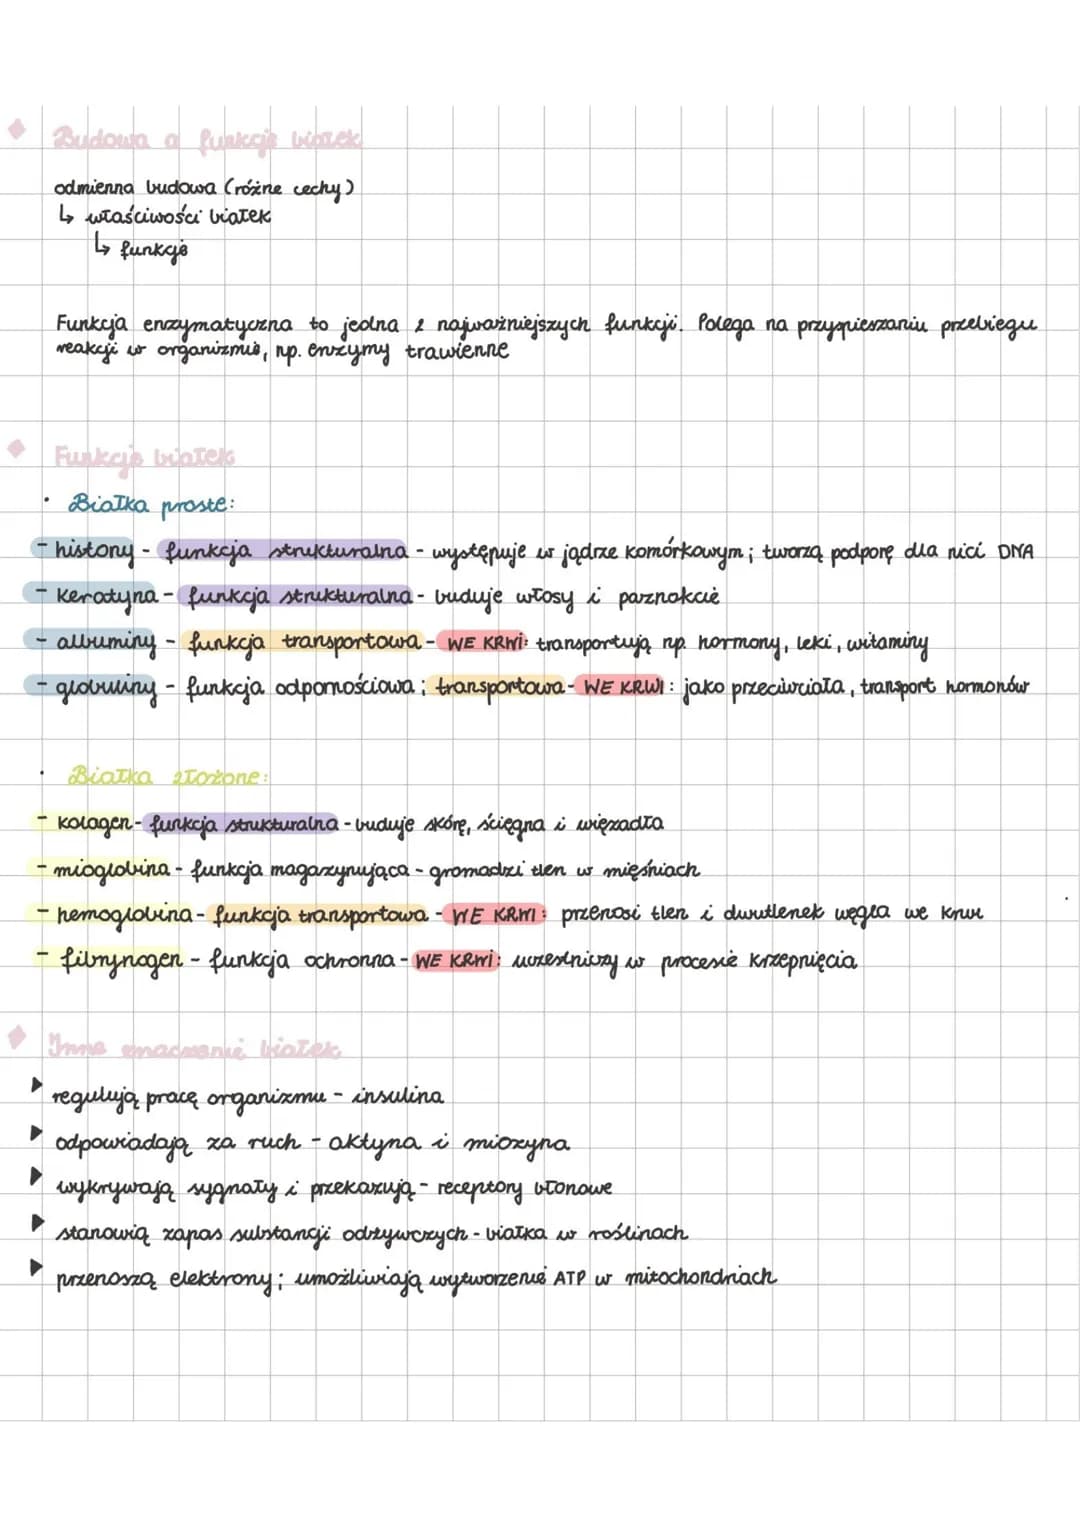 Budowa a funkcje białek
odmienna budowa (różne cechy)
↳ właściwości białek
↳ funkcje
Funkcja enzymatyczna to jedna z najważniejszych funkcji. Polega na przyspieszaniu przebiegu
reakcji w organizmie, np. enzymy trawienne
Funkcje białek
· Białka proste:
- histony - funkcja strukturalna - występuje w jądrze komórkowym; tworzą podporę dla nici DNA
- keratyna - funkcja strukturalna - buduje włosy i paznokcie
- albuminy - funkcja transportowa - WE KRWI: transportują np. hormony, leki, witaminy
- globuliny - funkcja odpornościowa; transportowa - WE KRWI: jako przeciwciała, transport hormonów
· Białka złożone:
- kolagen - funkcja strukturalna - buduje skórę, ścięgna i więzadła
- mioglobina - funkcja magazynująca - gromadzi tlen w mięśniach
- hemoglobina - funkcja transportowa - WE KRWI: przenosi tlen i dwutlenek węgla we krwi
- fibrynogen - funkcja ochronna - WE KRWI: uczestniczy w procesie krzepnięcia
Inne znaczenie białek
regulują pracę organizmu - insulina
odpowiadają za ruch - aktyna i miozyna
wykrywają sygnały i przekazują - receptory błonowe
stanowią zapas substancji odżywczych - białka w roślinach
przenoszą elektrony; umożliwiają wytworzenie ATP w mitochondriach